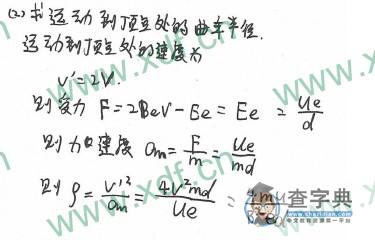 (2) 求运动到顶点处的曲率半径.
运动到顶点处的速度为
v'=2v.
则受力 F=2Bev-Ee=Ee=Ue/d
则加速度 am=F/m=Ue/md
则 ρ=v'²/am=4v²md/Ue=
www.xdf.cn
查字典
www.chazidian.com